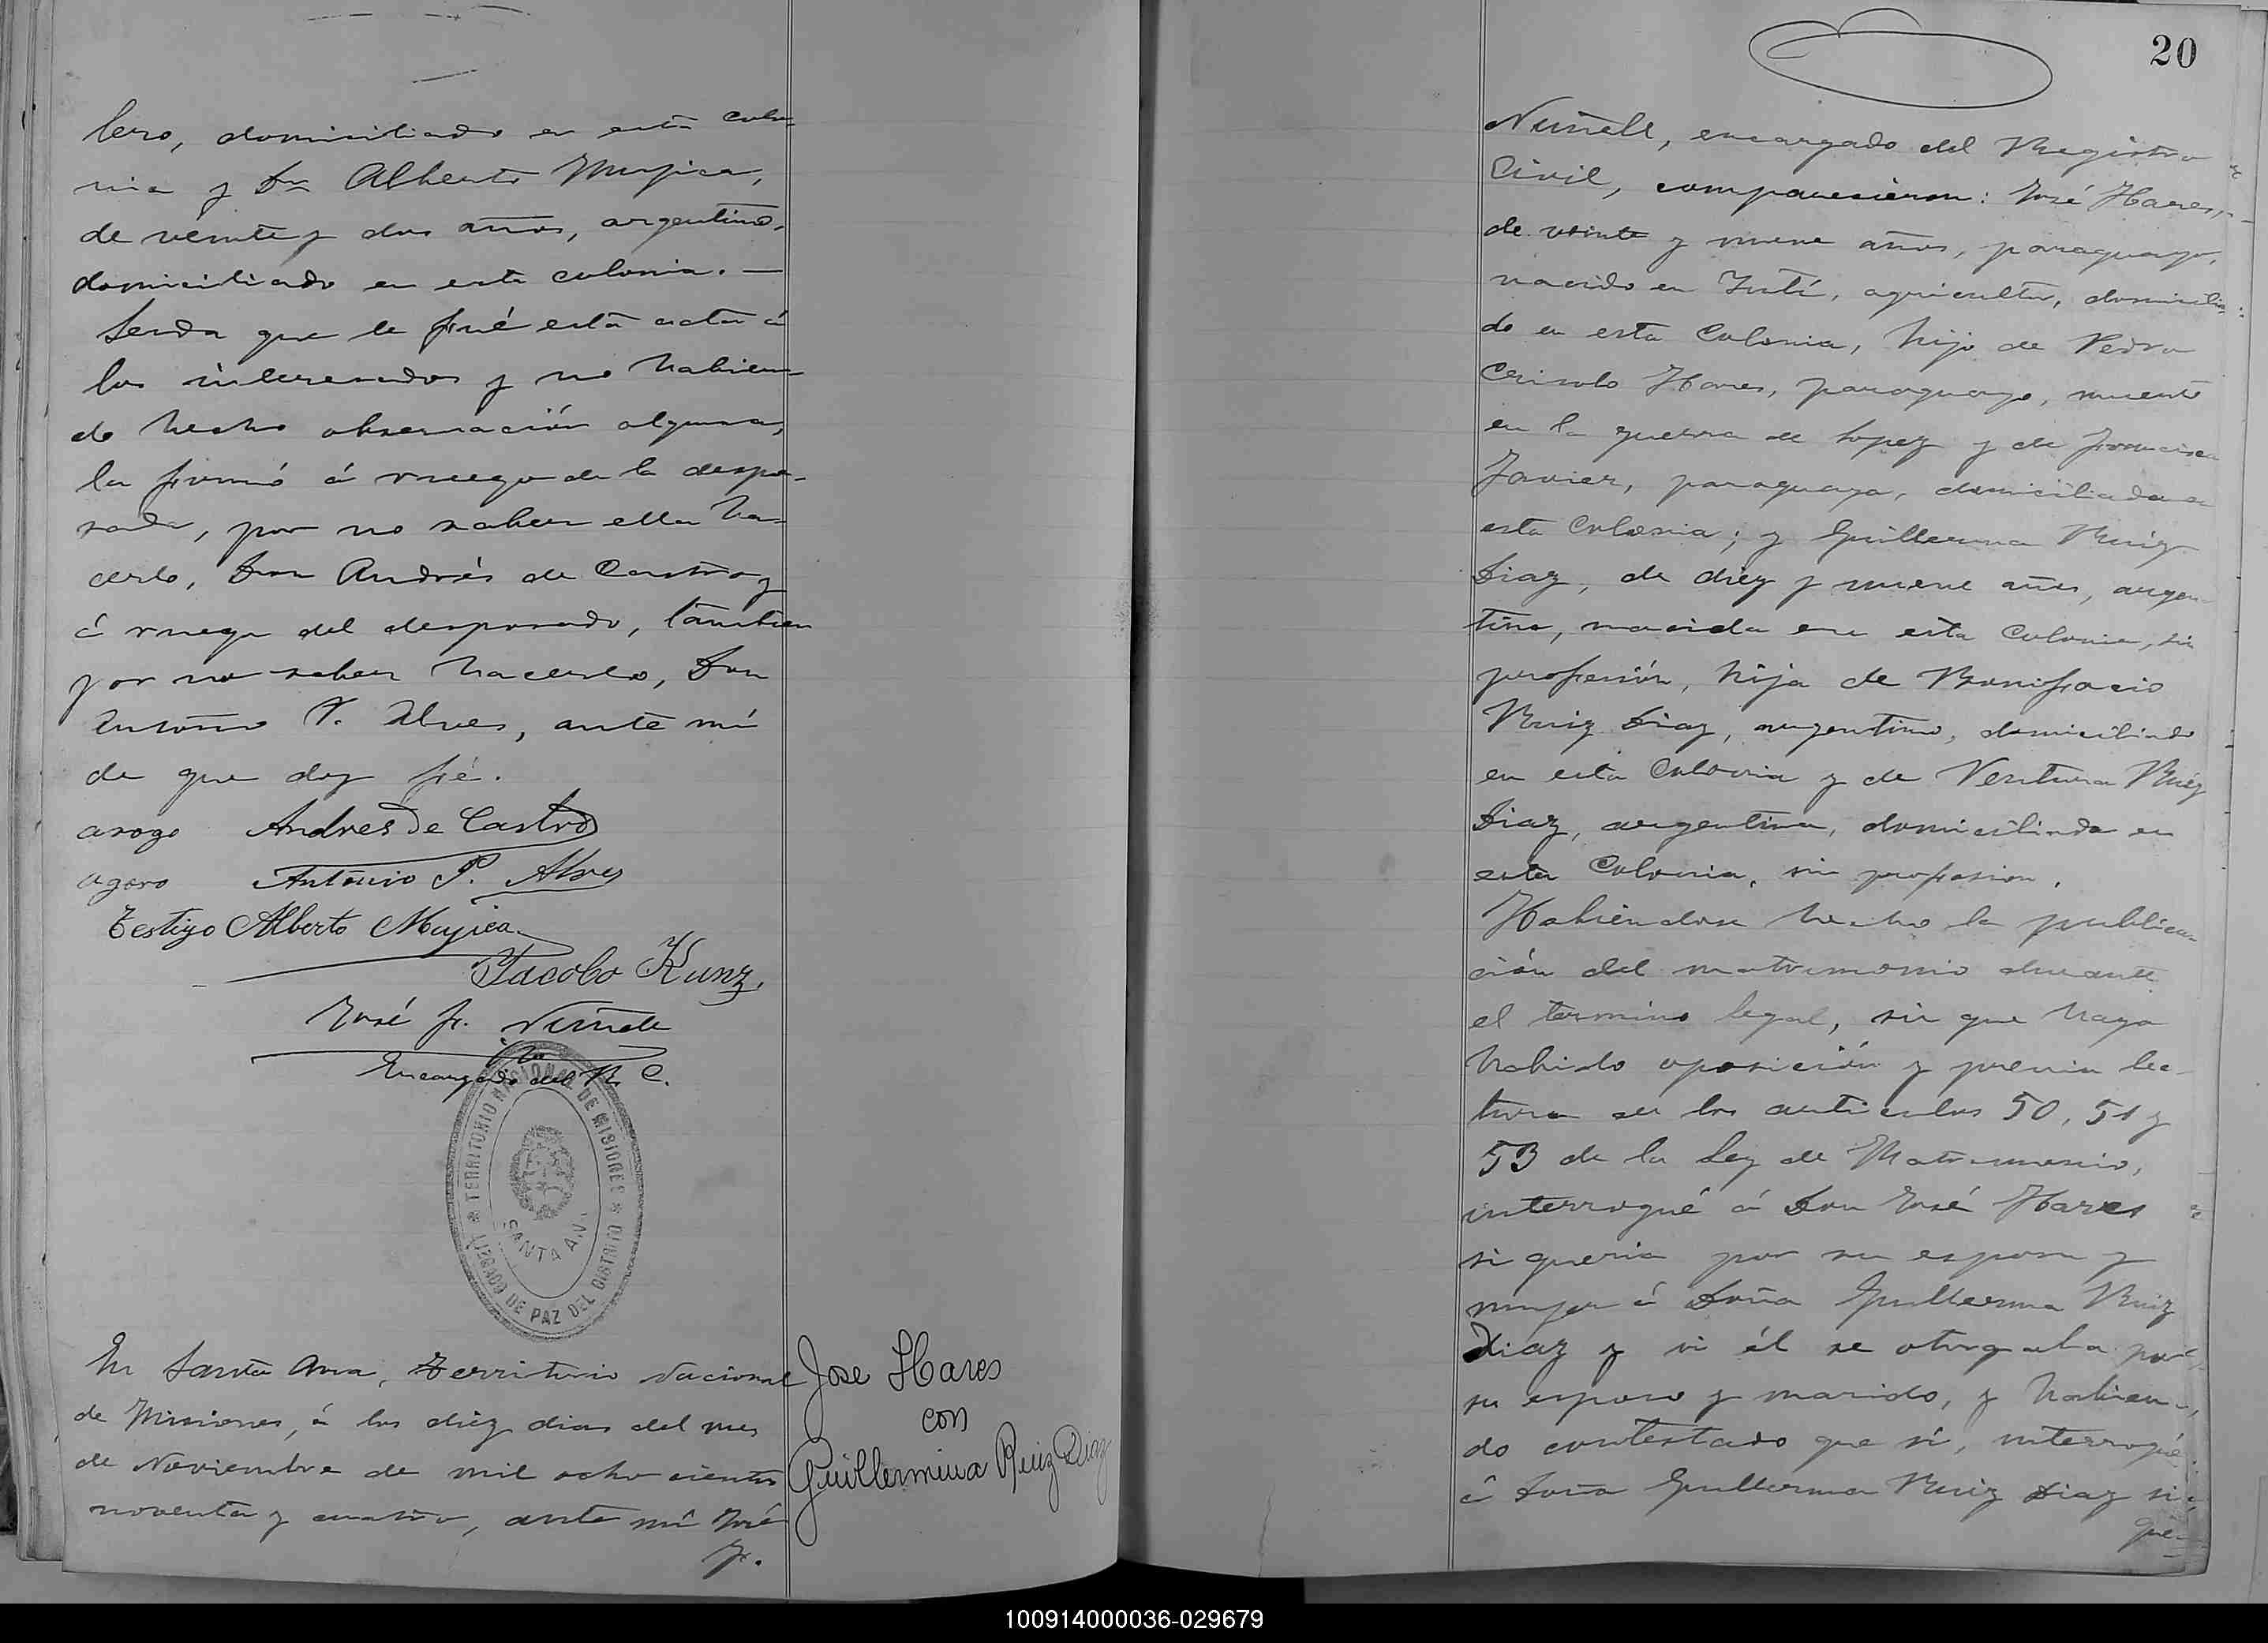 lero, domiciliado en esta colo-
nia y Dn Alberto Mujica,
de veinte y dos años, argentino,
domiciliado en esta colonia. —
Leida que le fué esta acta á
los interesados y no habien-
do hecho observación alguna,
la firmó á ruego de la despo-
sada, por no saber ella ha-
cerlo, Don Andrés de Castro y
á ruego del desposado, tambien
por no saber hacerlo, Don
Antonio P. Alves, ante mí
de que doy fé.
arogo Andres de Castro
agoro Antonio P. Alves
Testigo Alberto Mujica
Jacobo Kunz.
José F.
Encargado del R. C.
TERRITORIO NACIONAL DE MISIONES
SANTA ANA
JUZGADO DE PAZ DEL DISTRITO
En Santa Ana, Territorio Nacional
de Misiones, á los diez dias del mes
de Noviembre de mil ocho cientos
noventa y cuatro, ante mí José
F.
Jose Hares
con
Guillermina Ruiz Diaz
20
encargado del Registro
Civil, comparecieron: José Hares,
de veinte y nueve años, paraguayo,
nacido en Yutí, agricultor, domicilia-
do en esta Colonia, hijo de Pedro
Hares, paraguayo, muerto
en la guerra de Lopez y de Francisca
Javier, paraguaya, domiciliada en
esta Colonia; y Guillerma Ruiz
Diaz, de diez y nueve años, argen-
tina, nacida en esta Colonia, sin
profesión, hija de Bonifacio
Ruiz Diaz, argentino, domiciliado
en esta Colonia y de Ventura Ruiz
Diaz, argentina, domiciliada en
esta Colonia, sin profesion.
Habiendose hecho la publica-
ción del matrimonio durante
el termino legal, sin que haya
habido oposición y previa lec-
tura de los articulos 50, 51 y
53 de la Ley de Matrimonio,
interrogué á Don José Hares
si queria por su esposa y
mujer á Doña Guillerma Ruiz
Diaz y si él se otorgaba por
su esposo y marido, y habien-
do contestado que sí, interrogué
á Doña Guillerma Ruiz Diaz si
que-
100914000036-029679